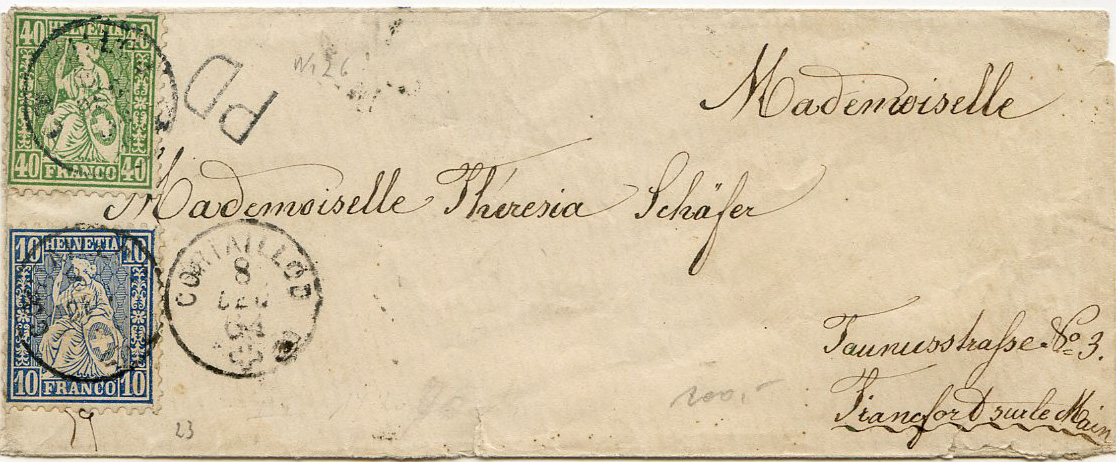 40 HELVETIA 40
40 FRANCO 40
PD
No 26
Mademoiselle
Mademoiselle Théresia Schäfer
10 HELVETIA 10
10 FRANCO 10
CORTAILLOD
8
DEC
Taunusstrasse No 3.
Francfort sur le Main
23